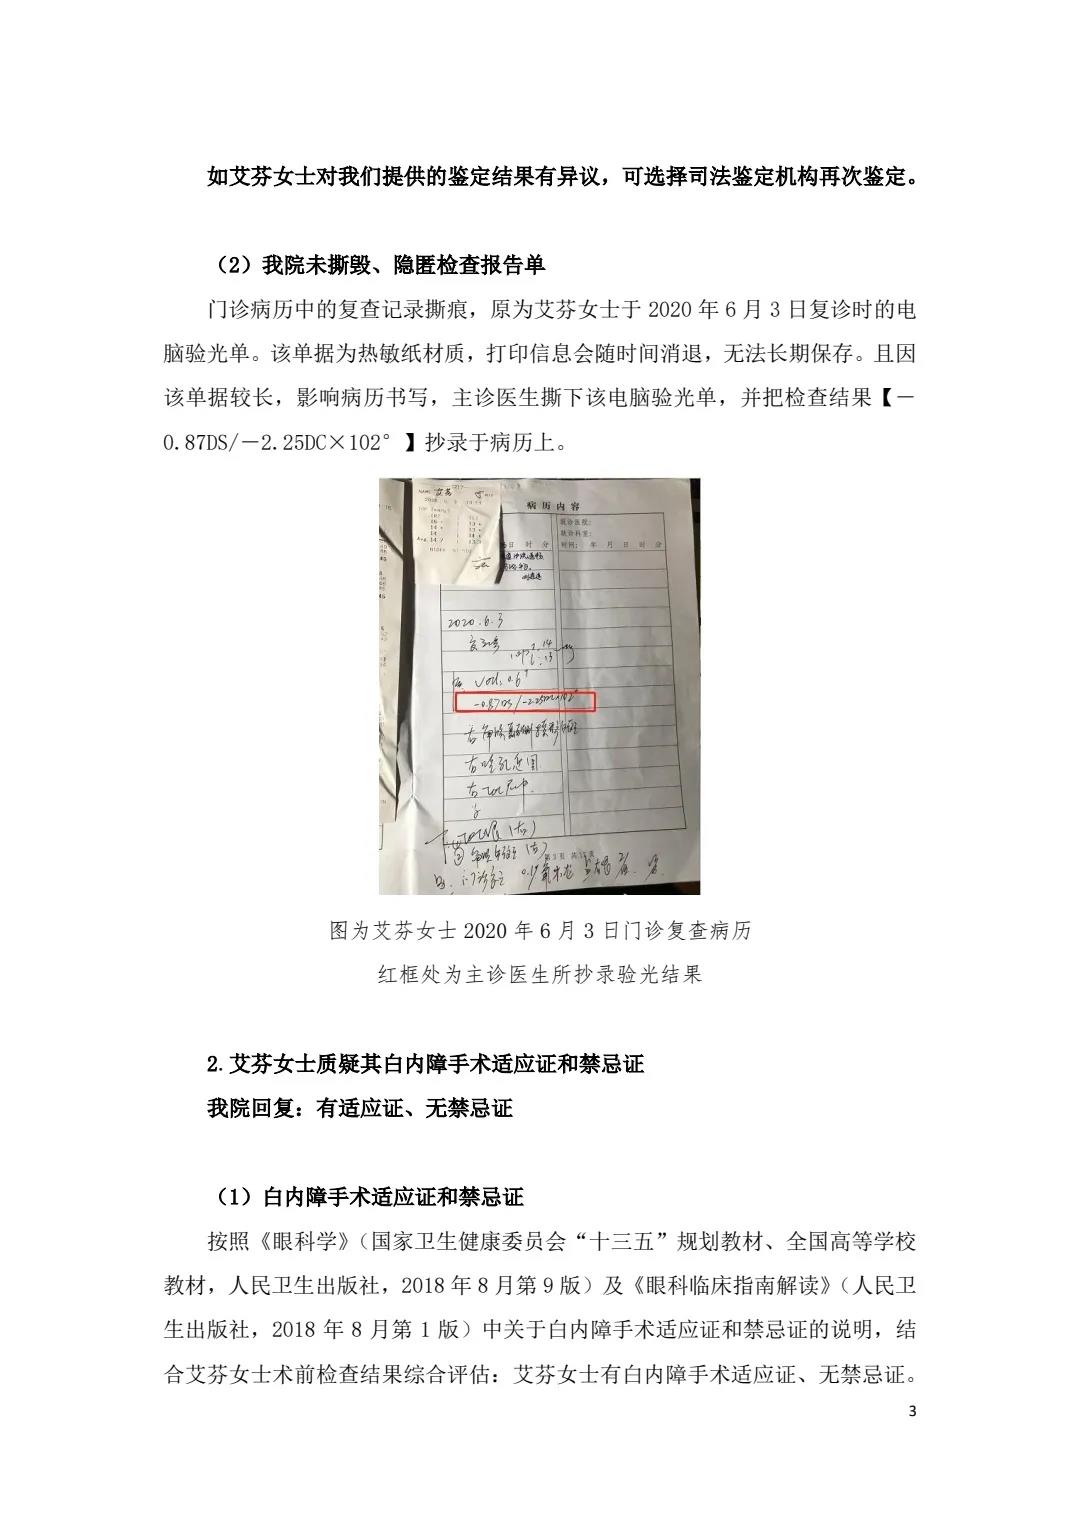 如艾芬女士对我们提供的鉴定结果有异议，可选择司法鉴定机构再次鉴定。
（2）我院未撕毁、隐匿检查报告单
门诊病历中的复查记录撕痕，原为艾芬女士于 2020 年 6 月 3 日复诊时的电
脑验光单。该单据为热敏纸材质，打印信息会随时间消退，无法长期保存。且因
该单据较长，影响病历书写，主诊医生撕下该电脑验光单，并把检查结果【－
0.87DS/－2.25DC×102°】抄录于病历上。
NAME 艾芬
病 历 内 容
就诊医院：
就诊科室：
日 时 分
时间： 年 月 日 时 分
2020.6.3
-0.87DS/-2.25DC×102°
图为艾芬女士 2020 年 6 月 3 日门诊复查病历
红框处为主诊医生所抄录验光结果
2.艾芬女士质疑其白内障手术适应证和禁忌证
我院回复：有适应证、无禁忌证
（1）白内障手术适应证和禁忌证
按照《眼科学》（国家卫生健康委员会“十三五”规划教材、全国高等学校
教材，人民卫生出版社，2018 年 8 月第 9 版）及《眼科临床指南解读》（人民卫
生出版社，2018 年 8 月第 1 版）中关于白内障手术适应证和禁忌证的说明，结
合艾芬女士术前检查结果综合评估：艾芬女士有白内障手术适应证、无禁忌证。
3